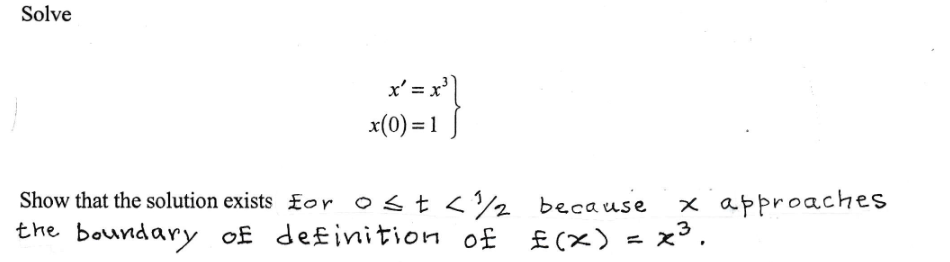 Solve
x′ = x³
x(0) = 1
Show that the solution exists for 0 ≤ t < 1/2 because x approaches
the boundary of definition of f(x) = x³.